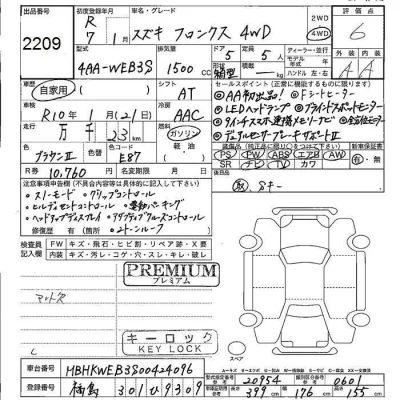 2209
初度登録
R 7年 1月
車名・グレード
スズキ フロンクス 4WD
2WD
4WD
評価点
6
型式
4AA-WEB3S
排気量
1500 cc
ドア
5
定員
5
箱型
ディーラー・並行
ハンドル 左・右
外装 内装
A A
車歴
自家用
シフト
AT
セールスポイント
◎AA初出品! ◎Fシートヒーター
◎LEDヘッドランプ ◎ブラインドスポットモニター
◎9インチスマホ連携メモリーナビ ◎全方位モニター
◎デュアルセンサーブレーキサポートII
車検
R10年 1月 (21)日
AAC
走行
万 千 23 km
ガソリン
軽油
色
ブラウンII
色替
E87
装備
PS PW TV ABS エアB AW
新車保証書
有
R券
10,760
名変期限
取 Sキー
注意事項申告欄
・ストモード ・グリップコントロール
・ヒルディセントコントロール ・電動パーキング
・ヘッドアップディスプレイ ・アダプティブクルーズコントロール
修復歴 有 ・2トーンルーフ
検査員
記入欄
FW キズ・飛石・ヒビ割・リペア跡・X要
内装 キズ・汚レ・コゲ・穴・スレ・キレ・破レ
PREMIUM
プレミアム
マット欠
キーロック
KEY LOCK
スペア
車台番号
MBHKWEB3S00424096
登録番号
福島 301 ひ 9309
20954
0601
長さ 399 cm
幅 176 cm
高さ 155 cm